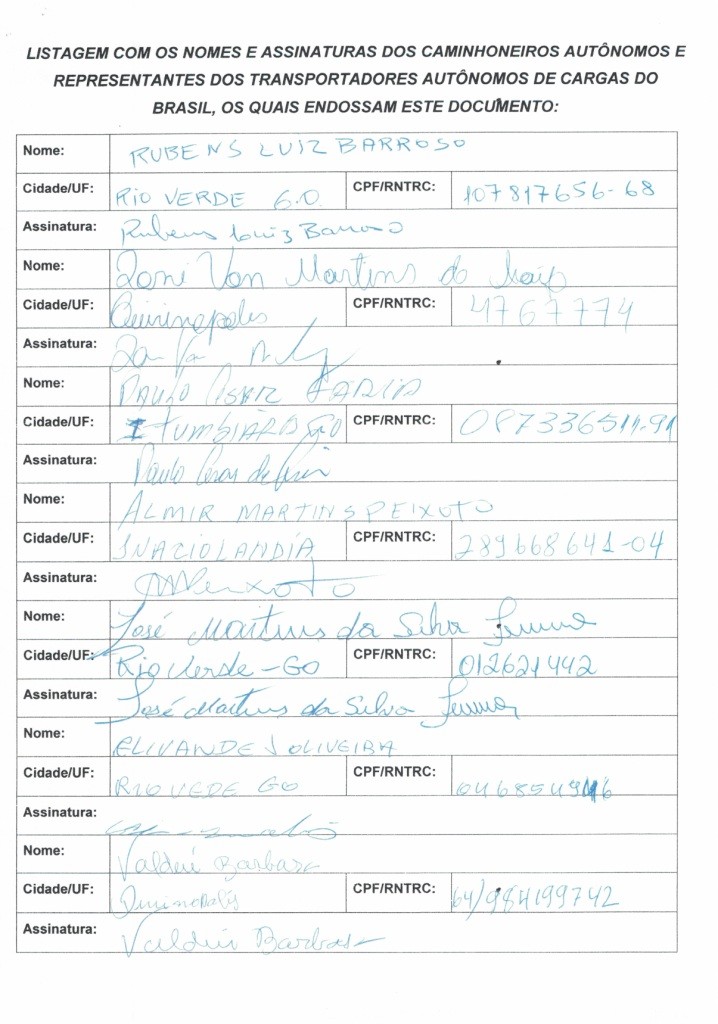 LISTAGEM COM OS NOMES E ASSINATURAS DOS CAMINHONEIROS AUTÔNOMOS E
REPRESENTANTES DOS TRANSPORTADORES AUTÔNOMOS DE CARGAS DO
BRASIL, OS QUAIS ENDOSSAM ESTE DOCUMENTO:
Nome: RUBENS LUIZ BARROSO
Cidade/UF: RIO VERDE G.O. CPF/RNTRC: 107817656-68
Assinatura: Rubens Luiz Barroso
Nome: Roni Von Martins de
Cidade/UF: Quirinopoles CPF/RNTRC: 4767774
Assinatura:
Nome: PAULO CESAR FARIA
Cidade/UF: ITUMBIARA GO CPF/RNTRC:
Assinatura: Paulo Cesar de Faria
Nome: ALMIR MARTINS PEIXOTO
Cidade/UF: INACIOLANDIA CPF/RNTRC: 289668641-04
Assinatura: Peixoto
Nome: José Martins da Silva
Cidade/UF: Rio Verde-GO CPF/RNTRC: 012621442
Assinatura: José Martins da Silva
Nome: ELIVANDE J OLIVEIRA
Cidade/UF: RIO VEDE GO CPF/RNTRC:
Assinatura:
Nome: Valdeí Barbasa
Cidade/UF: CPF/RNTRC: 64/984199742
Assinatura: Barbasa